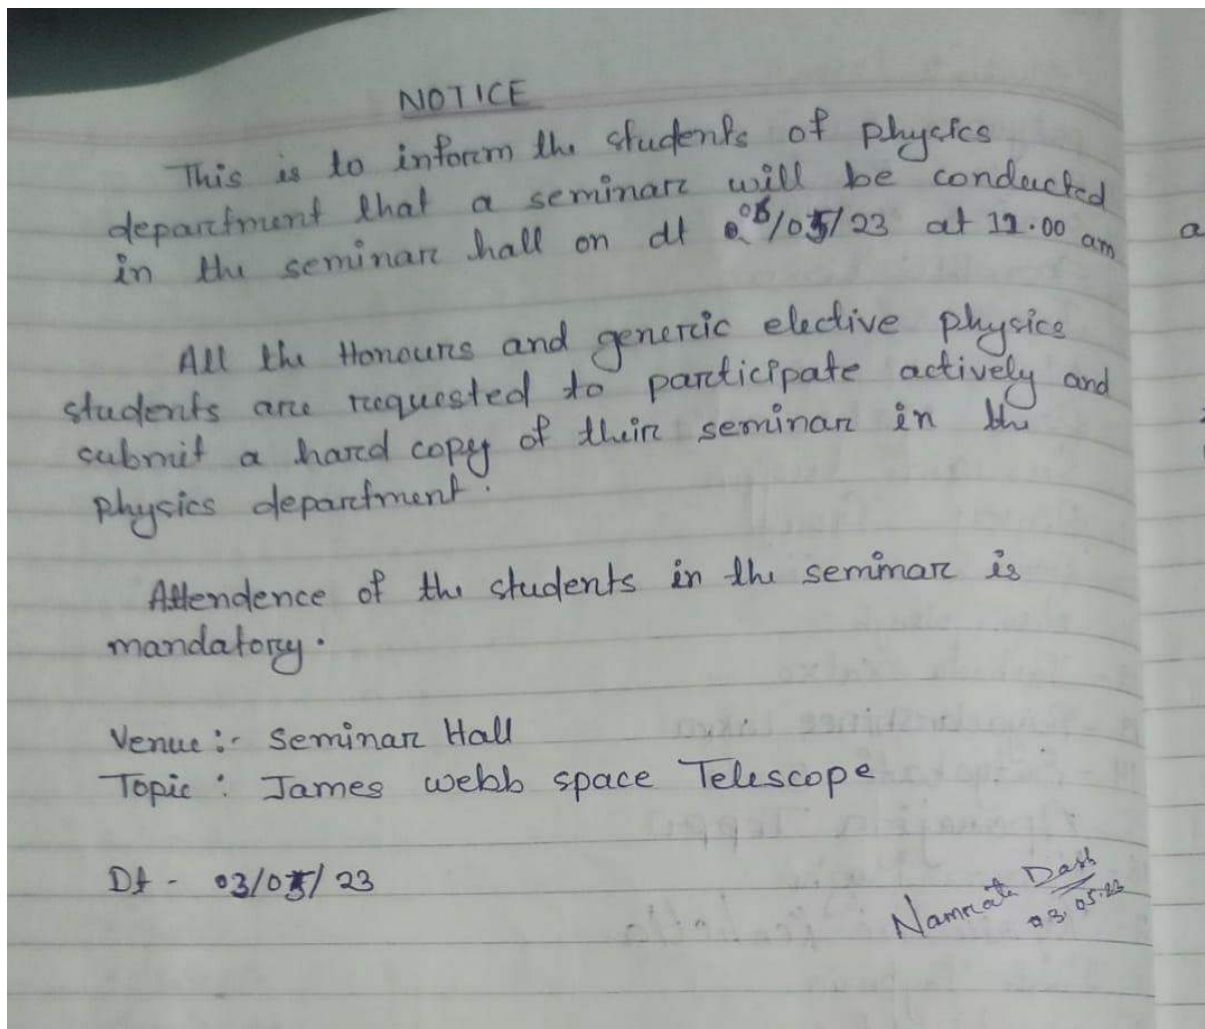 NOTICE
This is to inform the students of physics
department that a seminar will be conducted
in the seminar hall on dt /05/23 at am
All the Honours and generic elective physics
students are requested to participate actively and
submit a hard copy of their seminar in the
physics department.
Attendence of the students in the seminar is
mandatory.
Venue :- Seminar Hall
Topic : James webb space Telescope
Dt - 03/05/23
Namrata Dash
03.05.23